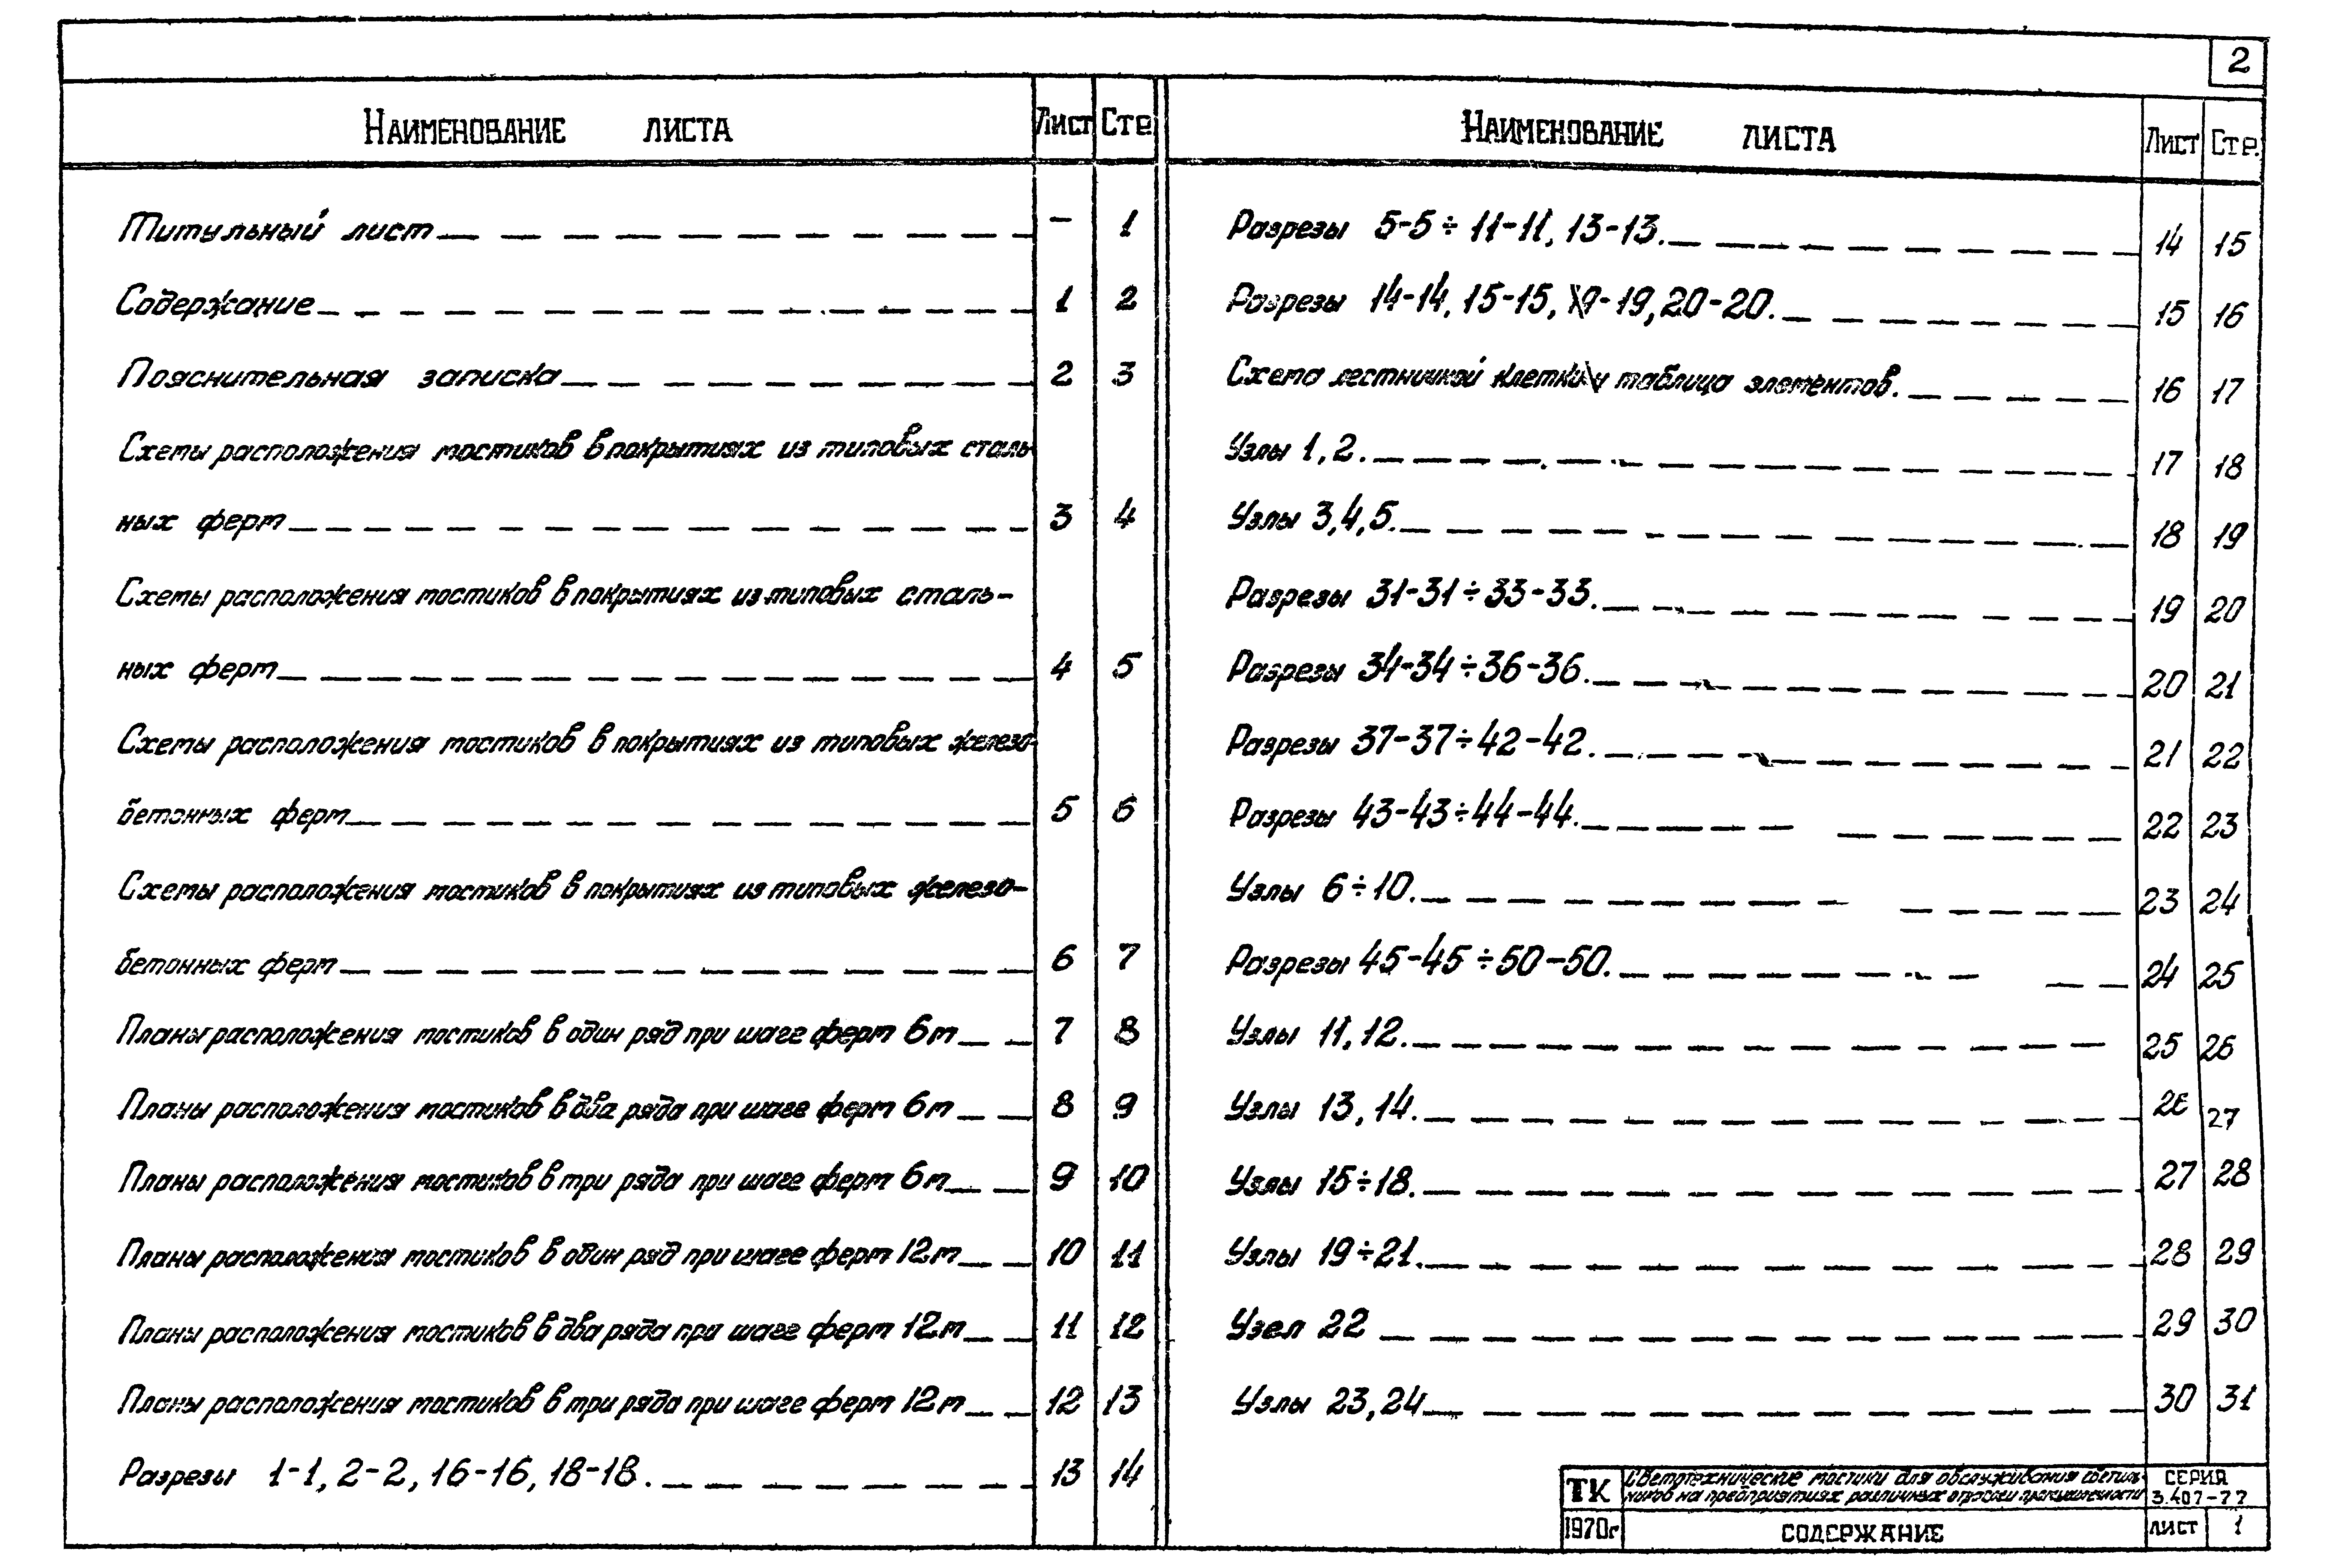 2
Наименование листа Лист Стр
Титульный лист — 1
Содержание 1 2
Пояснительная записка 2 3
Схемы расположения мостиков в покрытиях из типовых сталь
ных ферм 3 4
Схемы расположения мостиков в покрытиях из типовых сталь-
ных ферм 4 5
Схемы расположения мостиков в покрытиях из типовых железо-
бетонных ферм 5 6
Схемы расположения мостиков в покрытиях из типовых железо-
бетонных ферм 6 7
Планы расположения мостиков в один ряд при шаге ферм 6м 7 8
Планы расположения мостиков в два ряда при шаге ферм 6м 8 9
Планы расположения мостиков в три ряда при шаге ферм 6м 9 10
Планы расположения мостиков в один ряд при шаге ферм 12м 10 11
Планы расположения мостиков в два ряда при шаге ферм 12м 11 12
Планы расположения мостиков в три ряда при шаге ферм 12м 12 13
Разрезы 1-1, 2-2, 16-16, 18-18. 13 14
Наименование листа Лист Стр.
Разрезы 5-5÷11-11, 13-13. 14 15
Разрезы 14-14, 15-15, 19-19, 20-20. 15 16
Схема лестничной клетки и таблица элементов. 16 17
Узлы 1, 2. 17 18
Узлы 3,4,5. 18 19
Разрезы 31-31÷33-33. 19 20
Разрезы 34-34÷36-36. 20 21
Разрезы 37-37÷42-42. 21 22
Разрезы 43-43÷44-44. 22 23
Узлы 6÷10. 23 24
Разрезы 45-45÷50-50. 24 25
Узлы 11, 12. 25 26
Узлы 13, 14. 26 27
Узлы 15÷18. 27 28
Узлы 19÷21. 28 29
Узел 22 29 30
Узлы 23, 24 30 31
ТК Светотехнические мостики для обслуживания светиль- СЕРИЯ
ников на предприятиях различных отраслей промышленности 3.407-77
1970г СОДЕРЖАНИЕ ЛИСТ 1